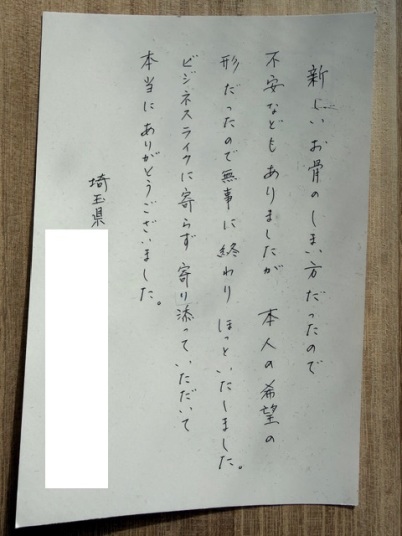 新しいお骨のしまい方だったので
不安などもありましたが 本人の希望の
形だったので無事に終わり ほっといたしました。
ビジネスライクに寄らず 寄り添っていただいて
本当にありがとうございました。
埼玉県